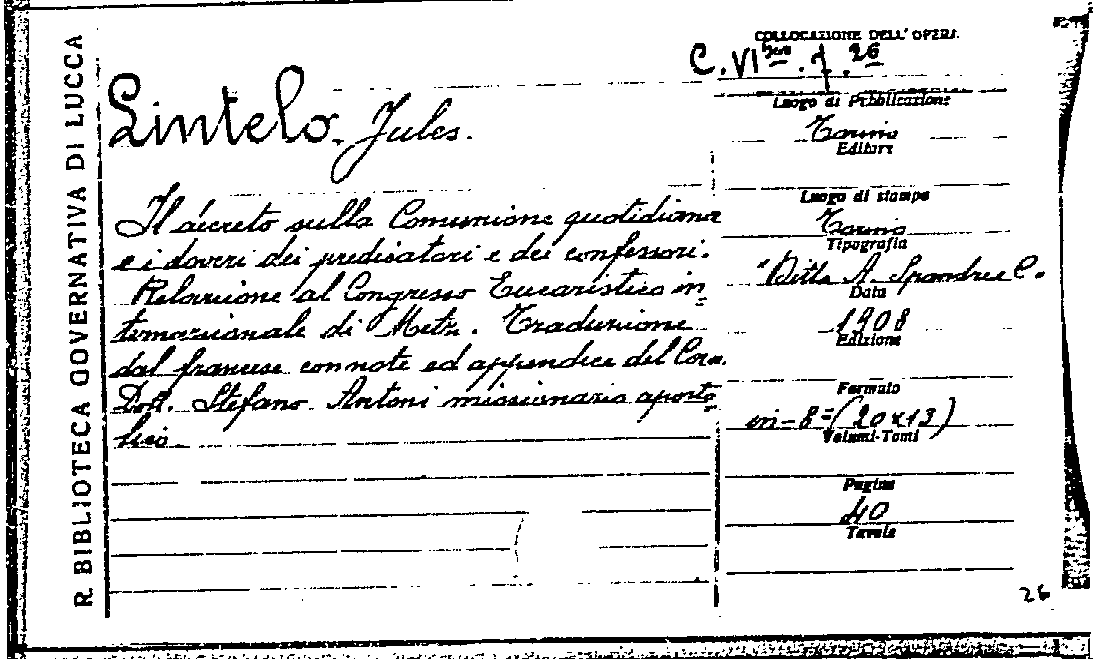 R. BIBLIOTECA GOVERNATIVA DI LUCCA
Lintelo Jules.
Il decreto sulla Comunione quotidiana
e i doveri dei predicatori e dei confessori.
Relazione al Congresso Eucaristico in
ternazionale di Metz. Traduzione
dal francese con note ed appendice del Can.
Dott. Stefano Antoni missionario aposto
lico
COLLOCAZIONE DELL'OPERA
C. VI 7. 26
Luogo di Pubblicazione
Torino
Editore
Luogo di stampa
Torino
Tipografia
"Ditta A. Spandre C.
Data
1908
Edizione
Formato
in-8=(20x13)
Volumi-Tomi
Pagine
40
Tavole
26